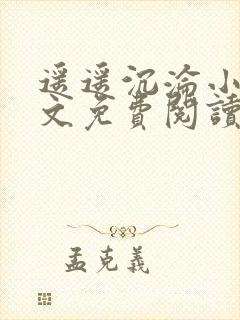 遥遥沉淪小
文免費閱讀
孟克義